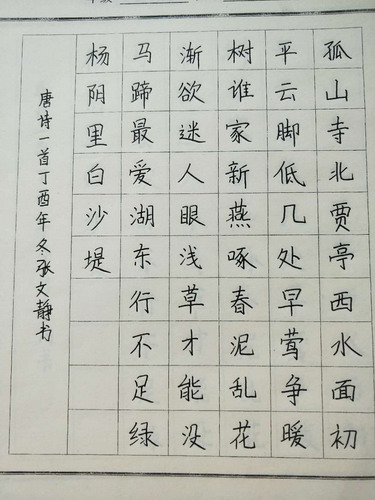 孤山寺北贾亭西水面初
平云脚低几处早莺争暖
树谁家新燕啄春泥乱花
渐欲迷人眼浅草才能没
马蹄最爱湖东行不足绿
杨阴里白沙堤
唐诗一首丁酉年冬张文静书